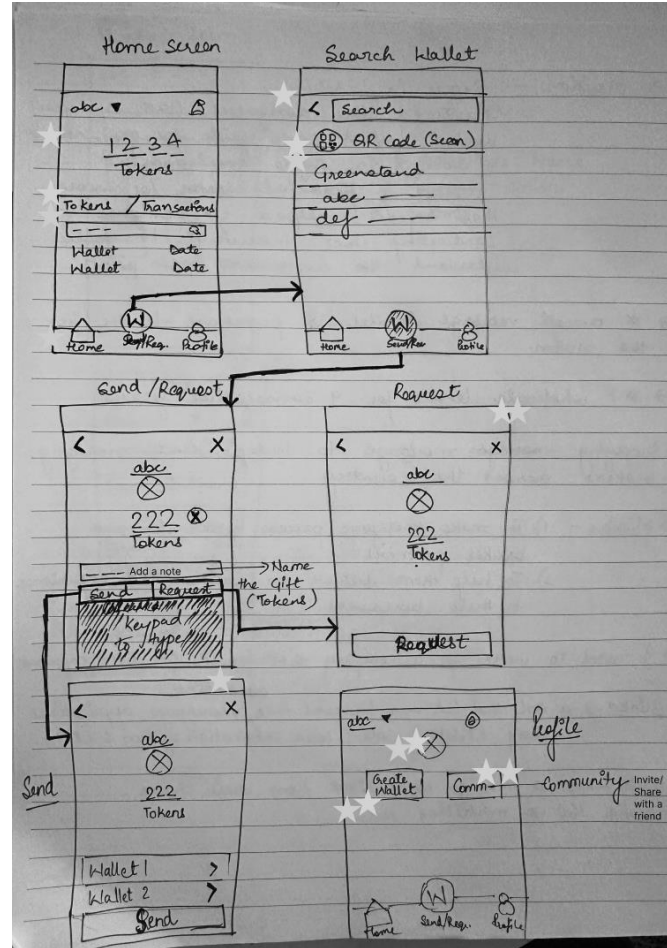 Home Screen
abc
1 2 3 4
Tokens
Tokens / Transactions
Wallet Date
Wallet Date
W
Home Send/Req. Profile
Search Wallet
<
Search
QR Code (Scan)
Greenstand
abc
def
W
Home Send/Req Profile
Send / Request
< X
abc
222 X
Tokens
Add a note
Name
the Gift
(Tokens)
Send Request
Keypad
to type
Request
< X
abc
222
Tokens
Request
Send
< X
abc
222
Tokens
Wallet 1 >
Wallet 2 >
Send
Profile
abc
Create
Wallet
Comm
Community
Invite/
Share
with a
friend
W
Home Send/Req. Profile